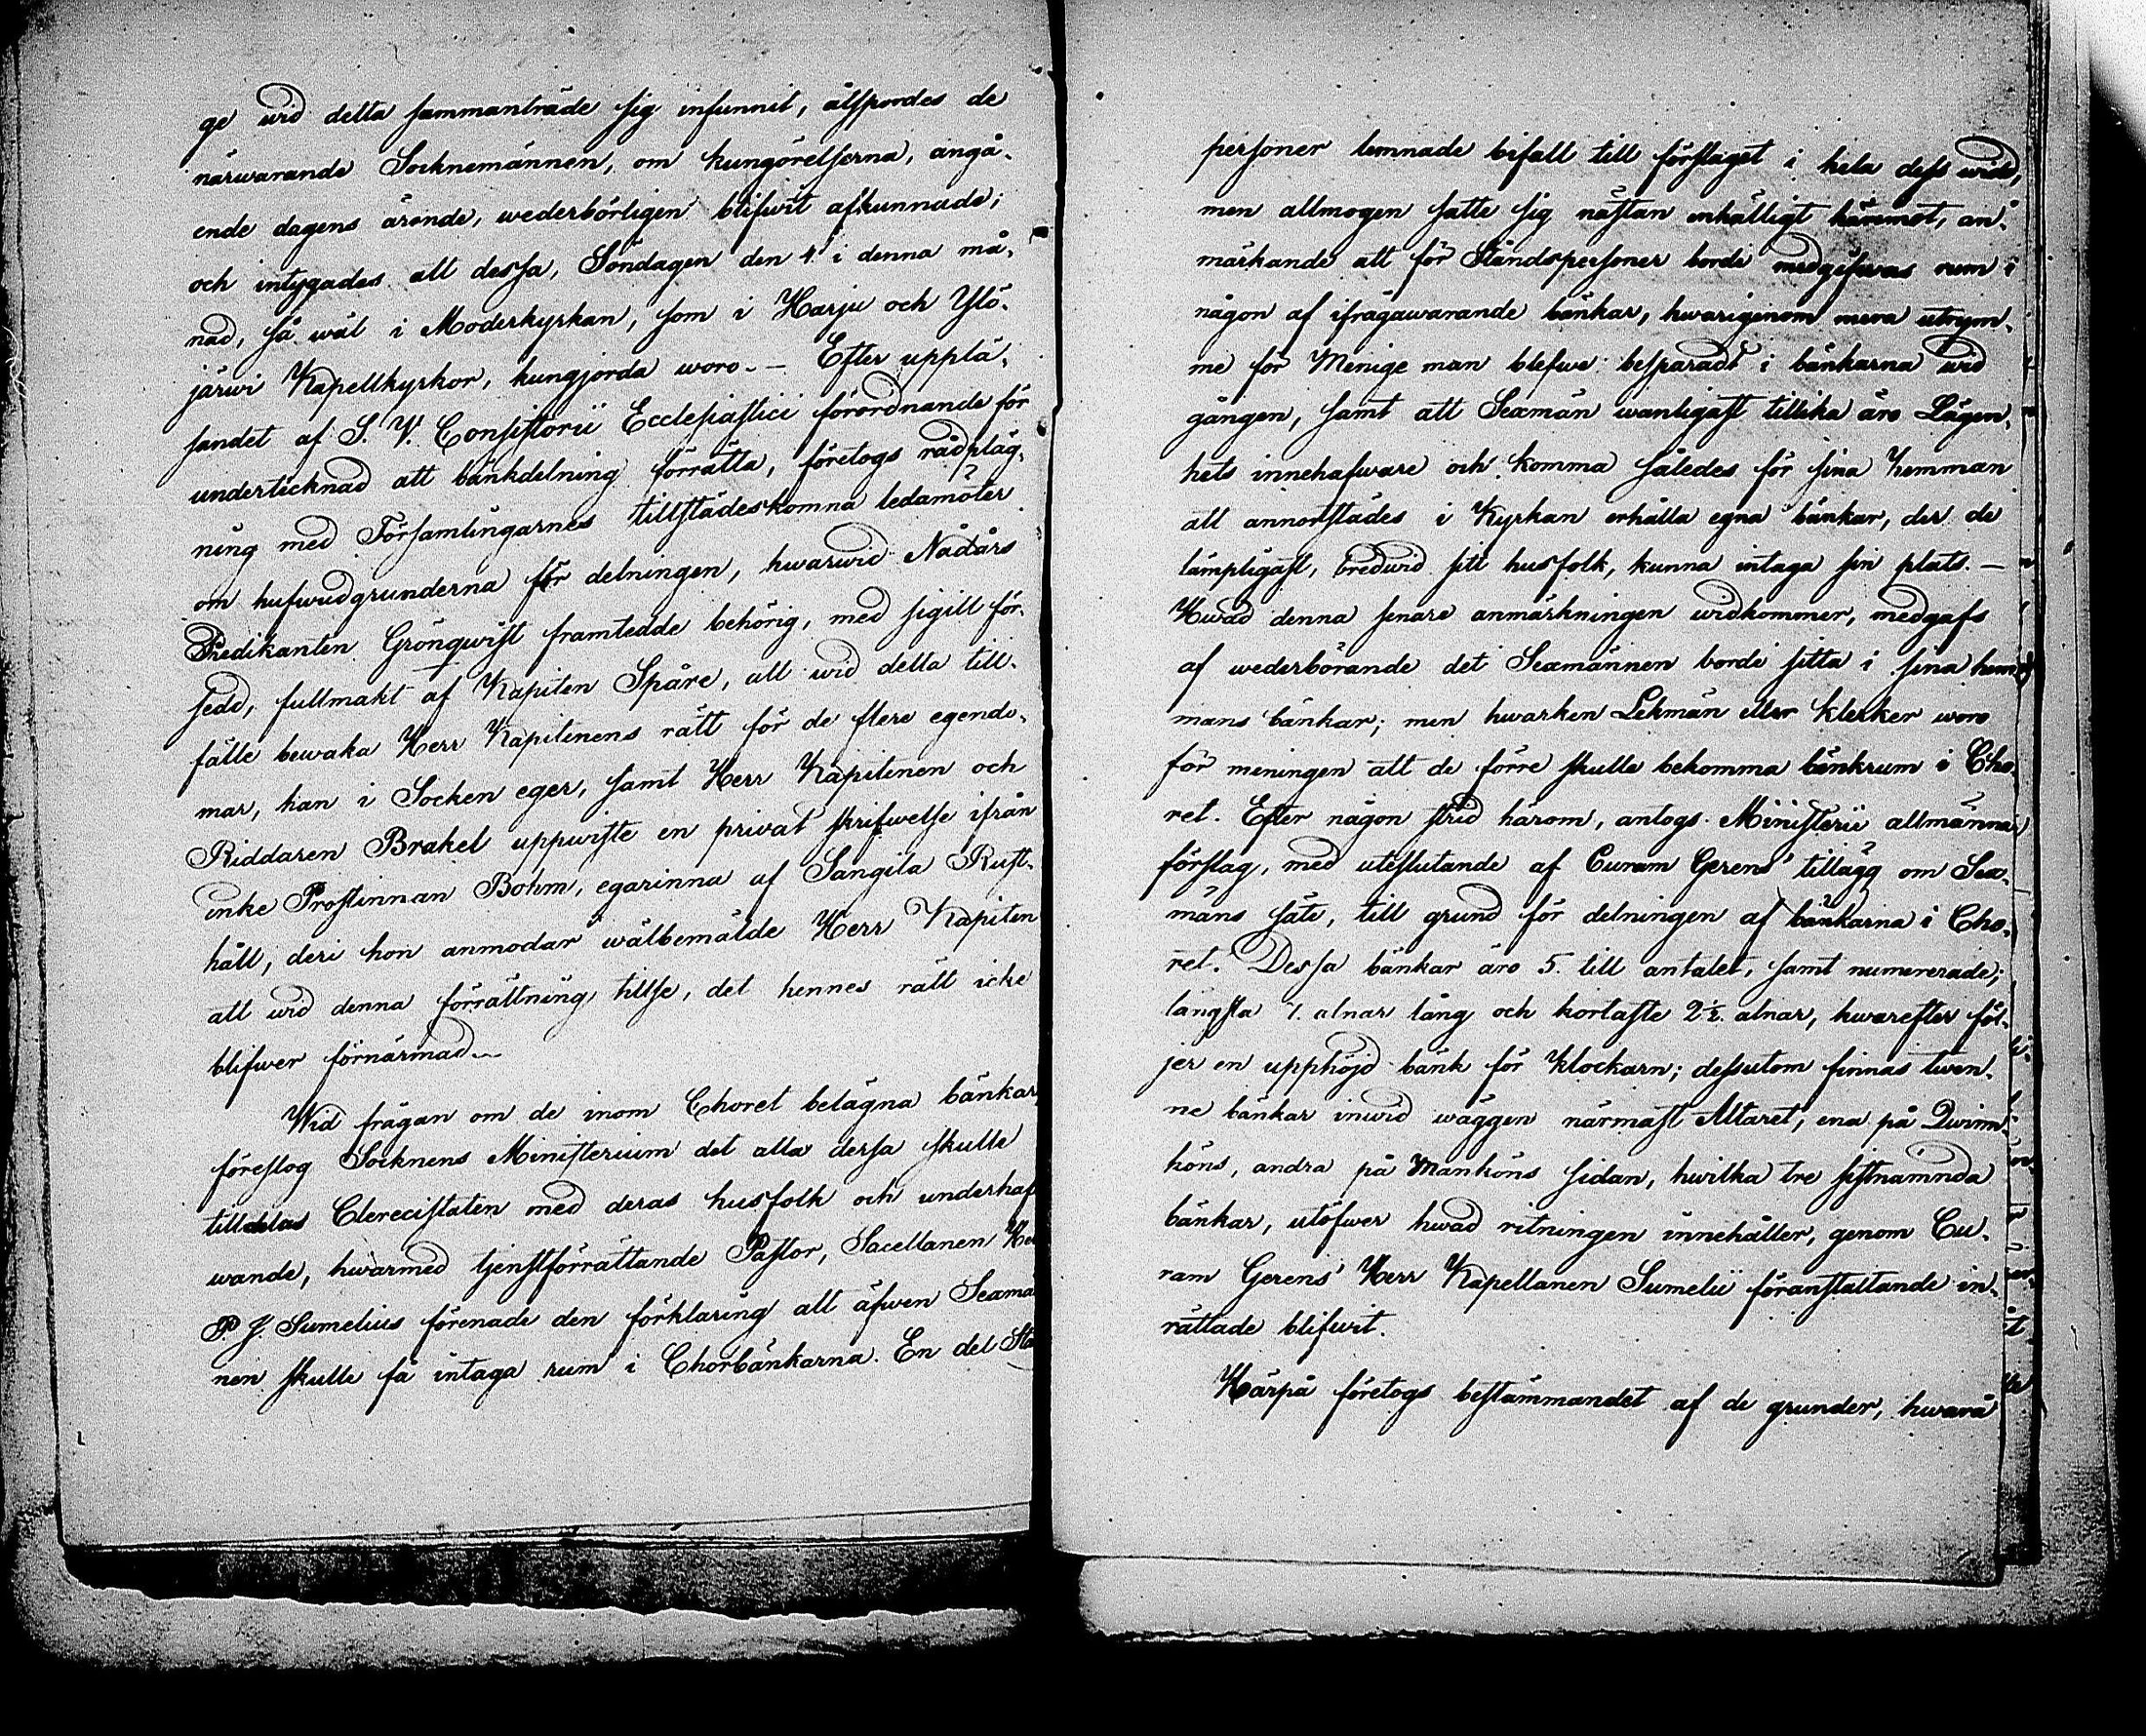 ge wid detta sammanträde sig infunnit, åtspordes de
närwarande Socknemännen, om kungörelserna, angå-
ende dagens ärende, wederbörligen blifwit afkunnade;
och intygades att dessa, Söndagen den 4. i denna må-
nad, så wäl i Moderkyrkan, som i Harju och Ylö-
järwi Kapellkyrkor, kungjorda woro. — Efter upplä-
sandet af S. V. Consistorii Ecclesiastici förordnande för
undertecknad att bänkdelning förrätta, företogs rådpläg-
ning med Församlingarnes tillstädeskomna ledamöter
om hufwudgrunderna för delningen, hwarwid Nådårs
Predikanten Grönqwist framtedde behörig, med sigill för-
sedd, fullmakt af Kapiten Spåre, att wid detta till-
fälle bewaka Herr Kapitenens rätt för de flere egendo-
mar, han i Socken eger, samt Herr Kapitenen och
Riddaren Brakel uppwiste en privat skrifwelse ifrån
enke Prostinnan Bohm, egarinna af Sangila Rust-
håll, deri hon anmodar wälbemälde Herr Kapiten
att wid denna förrättning tillse, det hennes rätt icke
blifwer förnärmad. —
Wid frågan om de inom Choret belägna bänkar,
föreslog Socknens Ministerium det alla dessa skulle
tilldelas Clerecistaten med deras husfolk och underhaf
wande, hwarmed tjenstförrättande Pastor, Sacellanen Her
P J. Sumelius förenade den förklaring att äfwen Sexmä
nen skulle få intaga rum i Chorbänkarna. En del Stå
personer lemnade bifall till förslaget i hela dess widd,
men allmogen satte sig nästan enhälligt häremot, an-
märkande att för Ståndspersoner borde medgifwas rum i
någon af ifrågawarande bänkar, hwarigenom mera utrym-
me för Menige man blefwe besparadt i bänkarna wid
gången, samt att Sexmän wanligast tillika äro Lägen-
hets innehafware och komma således för sina hemman
att annorstädes i Kyrkan erhålla egna bänkar, der de
lämpligast, bredwid sitt husfolk, kunna intaga sin plats. —
Hwad denna senare anmärkningen widkommer, medgafs
af wederbörande det Sexmännen borde sitta i sina hem-
mans bänkar; men hwarken Lekmän eller Klerker woro
för meningen att de förre skulle bekomma bänkrum i Cho-
ret. Efter någon strid härom, antogs Ministerii allmänna
förslag, med uteslutande af Curam Gerens' tillägg om Sex-
mäns säte, till grund för delningen af bänkarna i Cho-
ret. Dessa bänkar äro 5. till antalet, samt numrerade;
längsta 7. alnar lång och kortaste 2½. alnar, hwarefter föl-
jer en upphöjd bänk för Klockarn; dessutom finnas twen-
ne bänkar inwid wäggen närmast Altaret, ena på Qwinn-
köns, andra på Manköns sidan, hwilka tre sistnämnda
bänkar, utöfwer hwad ritningen innehåller, genom Cu-
ram Gerens' Herr Kapellanen Sumelii föranstaltande in-
rättade blifwit.
Härpå företogs bestämmandet af de grunder, hwarå